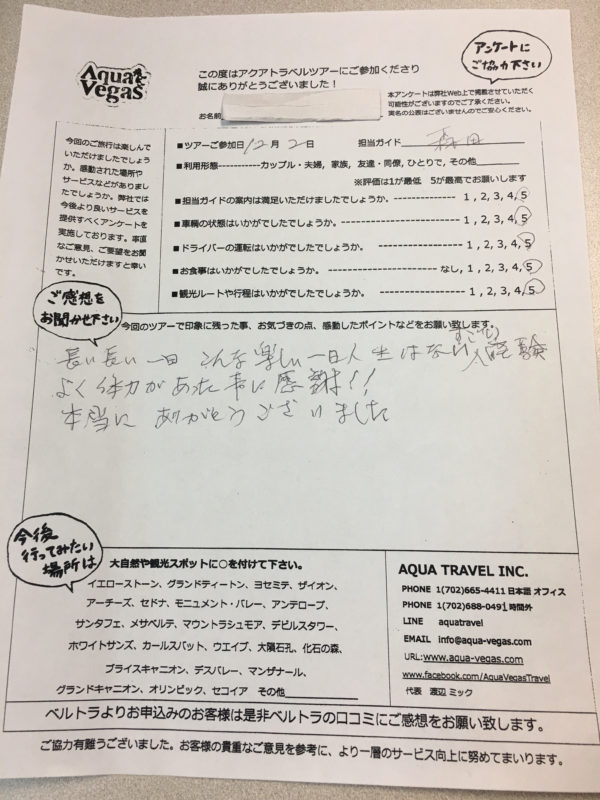 Aqua
Vegas
この度はアクアトラベルツアーにご参加くださり
誠にありがとうございました！
アンケートに
ご協力下さい
本アンケートは弊社Web上で掲載させていただく
可能性がございますのでご了承ください。
実名の公表はございませんのでご安心ください。
お名前
今回のご旅行は楽しんで
いただけましたでしょう
か。感動された場所や
サービスなどがありまし
たでしょうか。弊社では
今後より良いサービスを
提供すべくアンケートを
実施しております。率直
なご意見、ご要望をお聞
かせいただけますと幸い
です。
■ツアーご参加日 12月 2日 担当ガイド 森田
■利用形態------------カップル・夫婦, 家族, 友達・同僚, ひとりで, その他
※評価は1が最低 5が最高でお願いします
■担当ガイドの案内は満足いただけましたでしょうか。---------------- 1 , 2, 3, 4, 5
■車輌の状態はいかがでしたでしょうか。---------------------------- 1 , 2, 3, 4, 5
■ドライバーの運転はいかがでしたでしょうか。 ---------------- 1 , 2, 3, 4, 5
■お食事はいかがでしたでしょうか。 ---------------------------- なし, 1, 2, 3, 4, 5
■観光ルートや行程はいかがでしたでしょうか。 ------------------ 1 , 2, 3, 4, 5
ご感想を
お聞かせ下さい
今回のツアーで印象に残った事、お気づきの点、感動したポイントなどをお願い致します。
長い長い一日 こんな楽しい一日人生はない すごい 経験
よく体力があった事に感謝!!
本当に ありがとうございました
今後
行ってみたい
場所は
大自然や観光スポットに○を付けて下さい。
イエローストーン、グランドティートン、ヨセミテ、ザイオン、
アーチーズ、セドナ、モニュメント・バレー、アンテロープ、
サンタフェ、メサベルテ、マウントラシュモア、デビルスタワー、
ホワイトサンズ、カールスバット、ウエイブ、大隕石孔、化石の森、
ブライスキャニオン、デスバレー、マンザナール、
グランドキャニオン、オリンピック、セコイア その他
AQUA TRAVEL INC.
PHONE 1(702)665-4411 日本語 オフィス
PHONE 1(702)688-0491 時間外
LINE aquatravel
EMAIL info@aqua-vegas.com
URL:www.aqua-vegas.com
www.facebook.com/AquaVegasTravel
代表 渡辺 ミック
ベルトラよりお申込みのお客様は是非ベルトラの口コミにご感想をお願い致します。
ご協力有難うございました。お客様の貴重なご意見を参考に、より一層のサービス向上に努めてまいります。